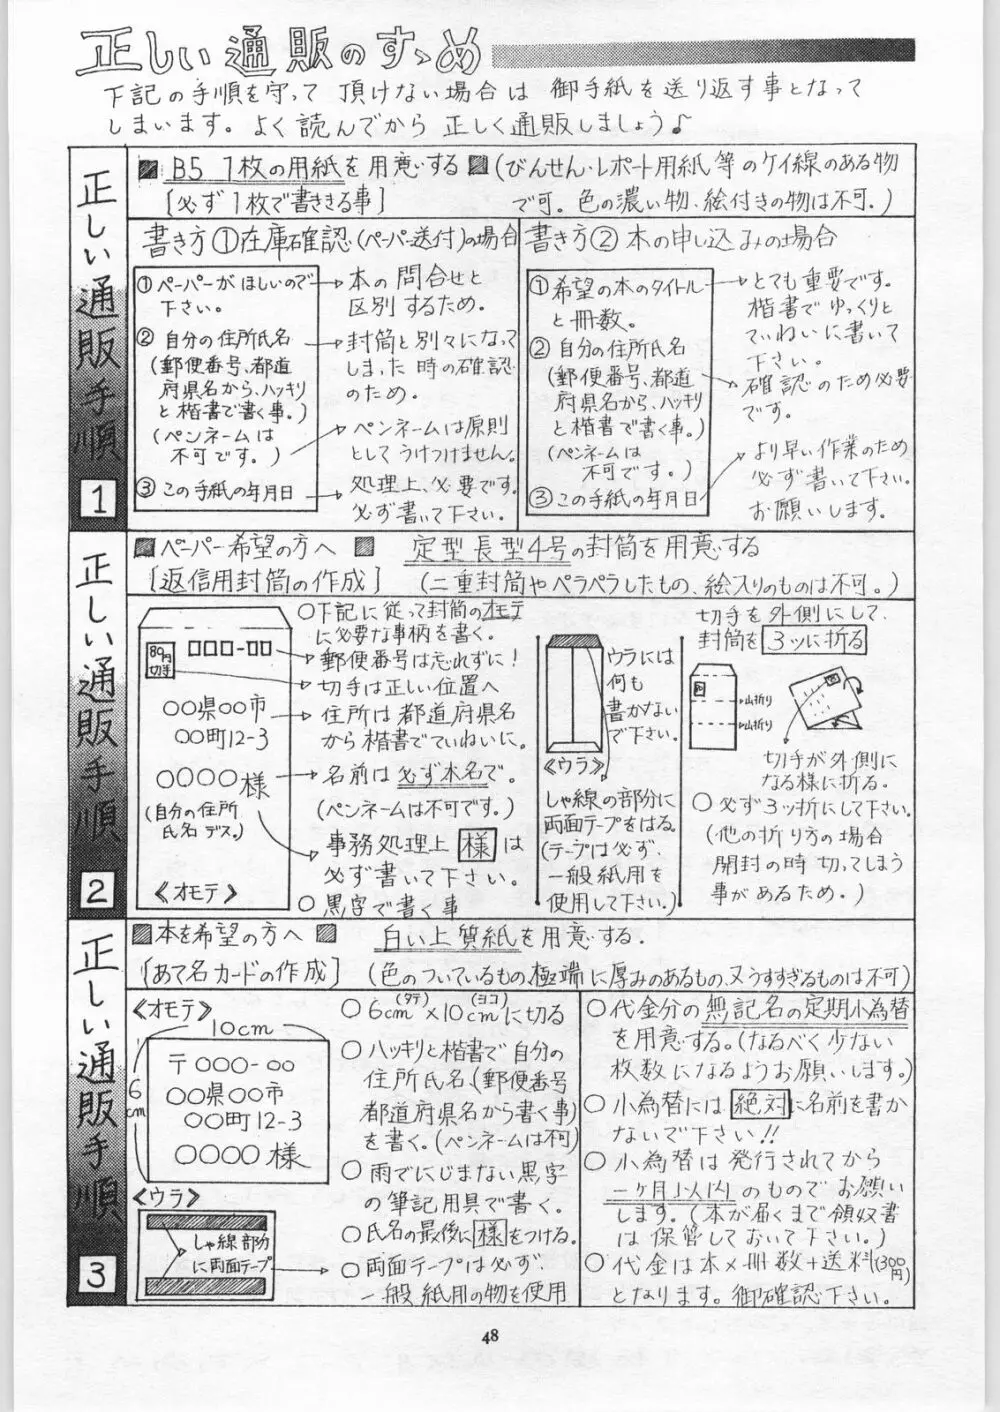 正しい通販のすゝめ
下記の手順を守って頂けない場合は御手紙を送り返す事となって
しまいます。よく読んでから正しく通販しましょう♪
正しい通販手順
1
B5 1枚の用紙を用意する (びんせん・レポート用紙等のケイ線のある物
[必ず1枚で書ききる事] で可。色の濃い物、絵付きの物は不可。)
書き方①在庫確認(ペーパー送付)の場合
①ペーパーがほしいので
下さい。
②自分の住所氏名
(郵便番号、都道
府県名から、ハッキリ
と楷書で書く事。)
(ペンネームは
不可です。)
③この手紙の年月日
本の問合せと
区別するため。
封筒と別々になって
しまった時の確認
のため。
ペンネームは原則
としてうけつけません。
処理上、必要です。
必ず書いて下さい。
書き方②本の申し込みの場合
①希望の本のタイトル
と冊数。
②自分の住所氏名
(郵便番号、都道
府県名から、ハッキリ
と楷書で書く事。)
(ペンネームは
不可です。)
③この手紙の年月日
とても重要です。
楷書でゆっくりと
ていねいに書いて
下さい。
確認のため必要
です。
より早い作業のため
必ず書いて下さい。
お願いします。
正しい通販手順
2
ペーパー希望の方へ 定型長型4号の封筒を用意する
[返信用封筒の作成] (二重封筒やペラペラしたもの、絵入りのものは不可。)
80円
切手
□□□-□□
○○県○○市
○○町12-3
○○○○様
(自分の住所
氏名デス。)
《オモテ》
○下記に従って封筒のオモテ
に必要な事柄を書く。
郵便番号は忘れずに!
切手は正しい位置へ
住所は都道府県名
から楷書でていねいに。
名前は必ず本名で。
(ペンネームは不可です。)
事務処理上様は
必ず書いて下さい。
○黒字で書く事
ウラには
何も
書かない
で下さい。
《ウラ》
しゃ線の部分に
両面テープをはる。
(テープは必ず、
一般紙用を
使用して下さい。)
切手を外側にして、
封筒を3ッに折る
山折り
山折り
切手が外側に
なる様に折る。
○必ず3ッ折にして下さい。
(他の折り方の場合
開封の時切ってしまう
事があるため。)
正しい通販手順
3
本を希望の方へ 白い上質紙を用意する.
[あて名カードの作成] (色のついているもの、極端に厚みのあるもの、又うすすぎるものは不可)
《オモテ》
10cm
6cm
〒○○○-○○
○○県○○市
○○町12-3
○○○○様
《ウラ》
しゃ線部分
に両面テープ
○6cm(タテ)×10cm(ヨコ)に切る
○ハッキリと楷書で自分の
住所氏名、(郵便番号
都道府県名から書く事)
を書く。(ペンネームは不可)
○雨でにじまない黒字
の筆記用具で書く。
○氏名の最後に様をつける。
○両面テープは必ず、
一般紙用の物を使用
○代金分の無記名の定期小為替
を用意する。(なるべく少ない
枚数になるようお願いします。)
○小為替には絶対に名前を書か
ないで下さい!!
○小為替は発行されてから
一ヶ月以内のものでお願い
します。(本が届くまで領収書
は保管しておいて下さい。)
○代金は本×冊数+送料(300円)
となります。御確認下さい。
48